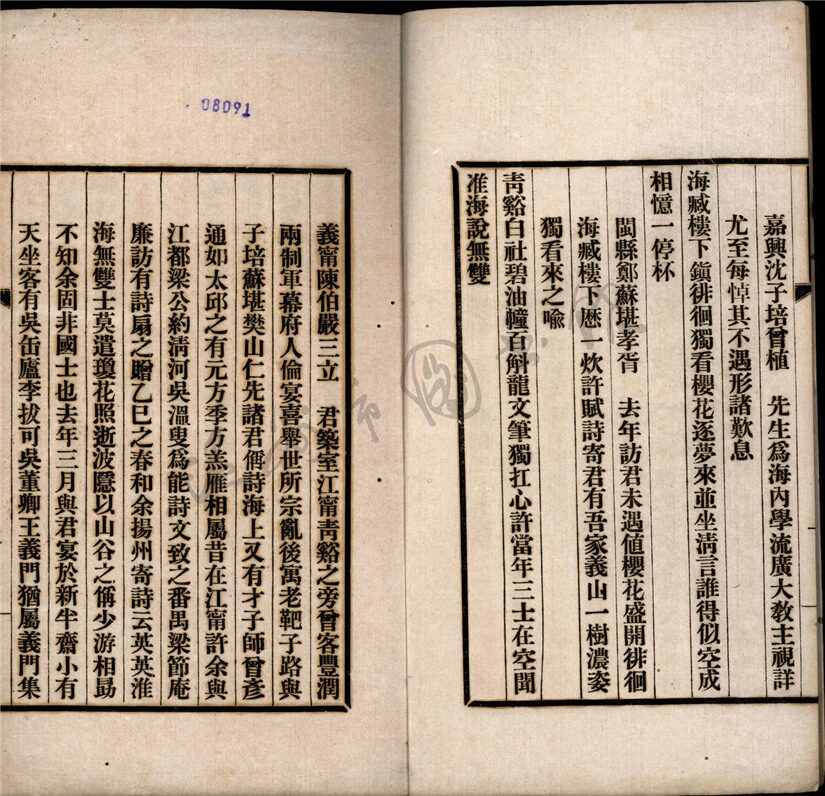 嘉興沈子培曾植　先生爲海內學流廣大敎主視詳
尤至每悼其不遇形諸歎息
海臧樓下鎭徘徊獨看櫻花逐夢來並坐淸言誰得似空成
相憶一停杯
閩縣鄭蘇堪孝胥　去年訪君未遇値櫻花盛開徘徊
海臧樓下歷一炊許賦詩寄君有吾家義山一樹濃姿
獨看來之喩
靑谿白社碧油幢百斛龍文筆獨扛心許當年三士在空聞
淮海說無雙
義甯陳伯嚴三立　君築室江甯靑谿之旁曾客豐潤
兩制軍幕府人倫宴喜舉世所宗亂後寓老靶子路與
子培蘇堪樊山仁先諸君偁詩海上又有才子師曾彥
通如太邱之有元方季方羔雁相屬昔在江甯許余與
江都梁公約淸河吳溫叟爲能詩文致之番禺梁節庵
廉訪有詩扇之贈乙巳之春和余揚州寄詩云英英淮
海無雙士莫遣瓊花照逝波隱以山谷之偁少游相勗
不知余固非國士也去年三月與君宴於新半齋小有
天坐客有吳缶廬李拔可吳董卿王義門猶屬義門集
08091